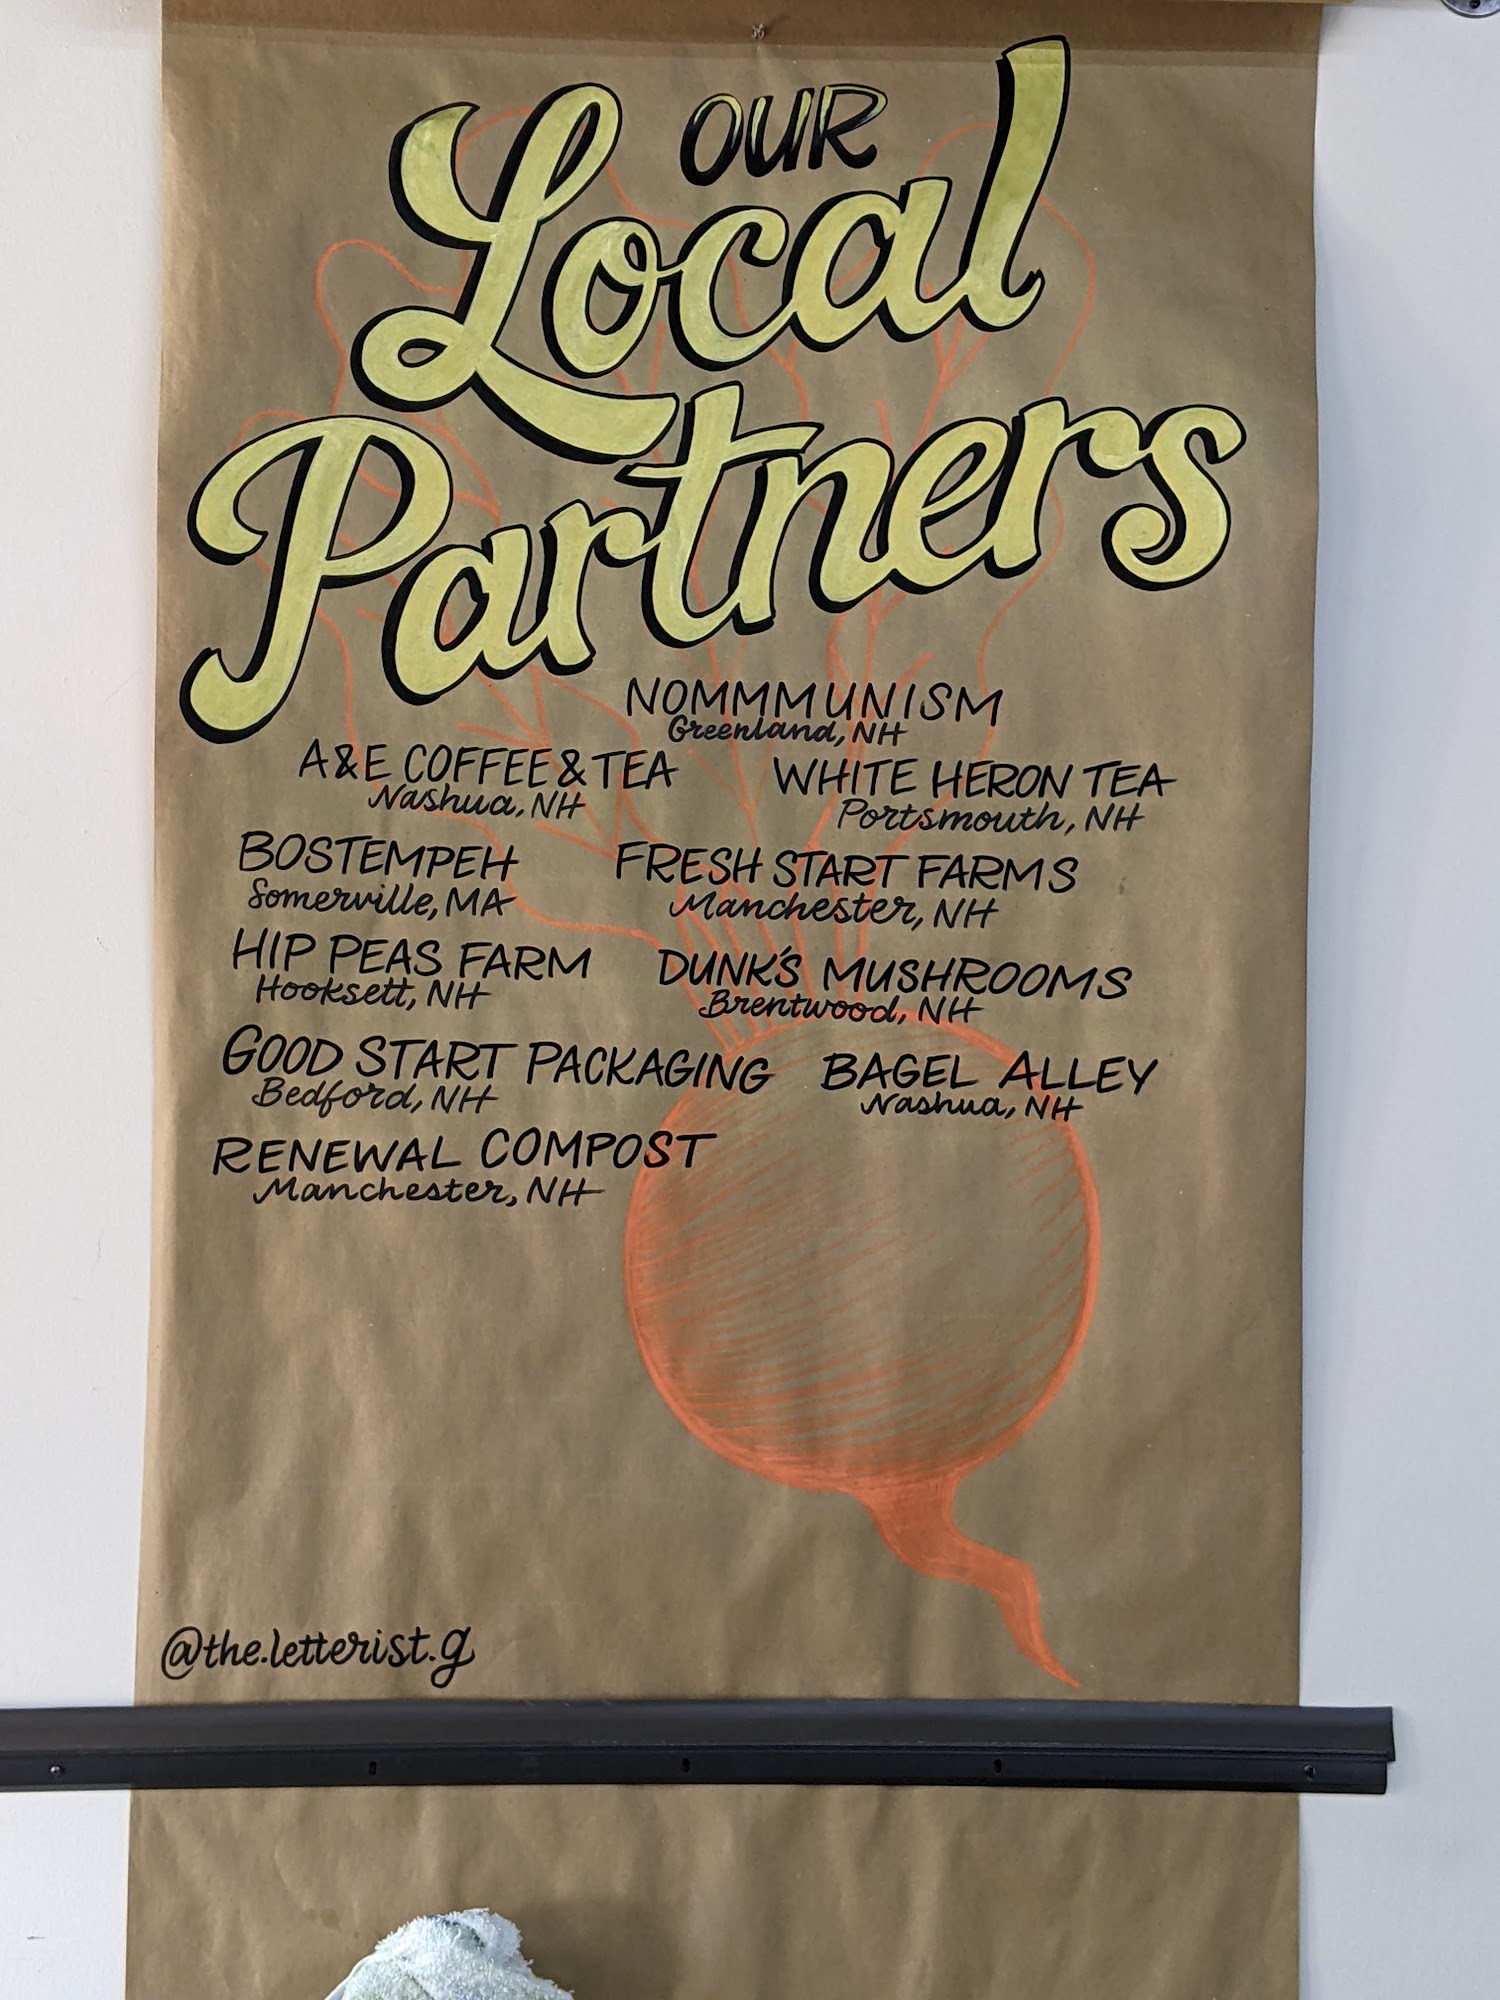 OUR
Local
Partners
NOMMMUNISM
Greenland, NH
A&E COFFEE & TEA
Nashua, NH
WHITE HERON TEA
Portsmouth, NH
BOSTEMPEH
Somerville, MA
FRESH START FARMS
Manchester, NH
HIP PEAS FARM
Hooksett, NH
DUNK'S MUSHROOMS
Brentwood, NH
GOOD START PACKAGING
Bedford, NH
BAGEL ALLEY
Nashua, NH
RENEWAL COMPOST
Manchester, NH
@the.letterist.g